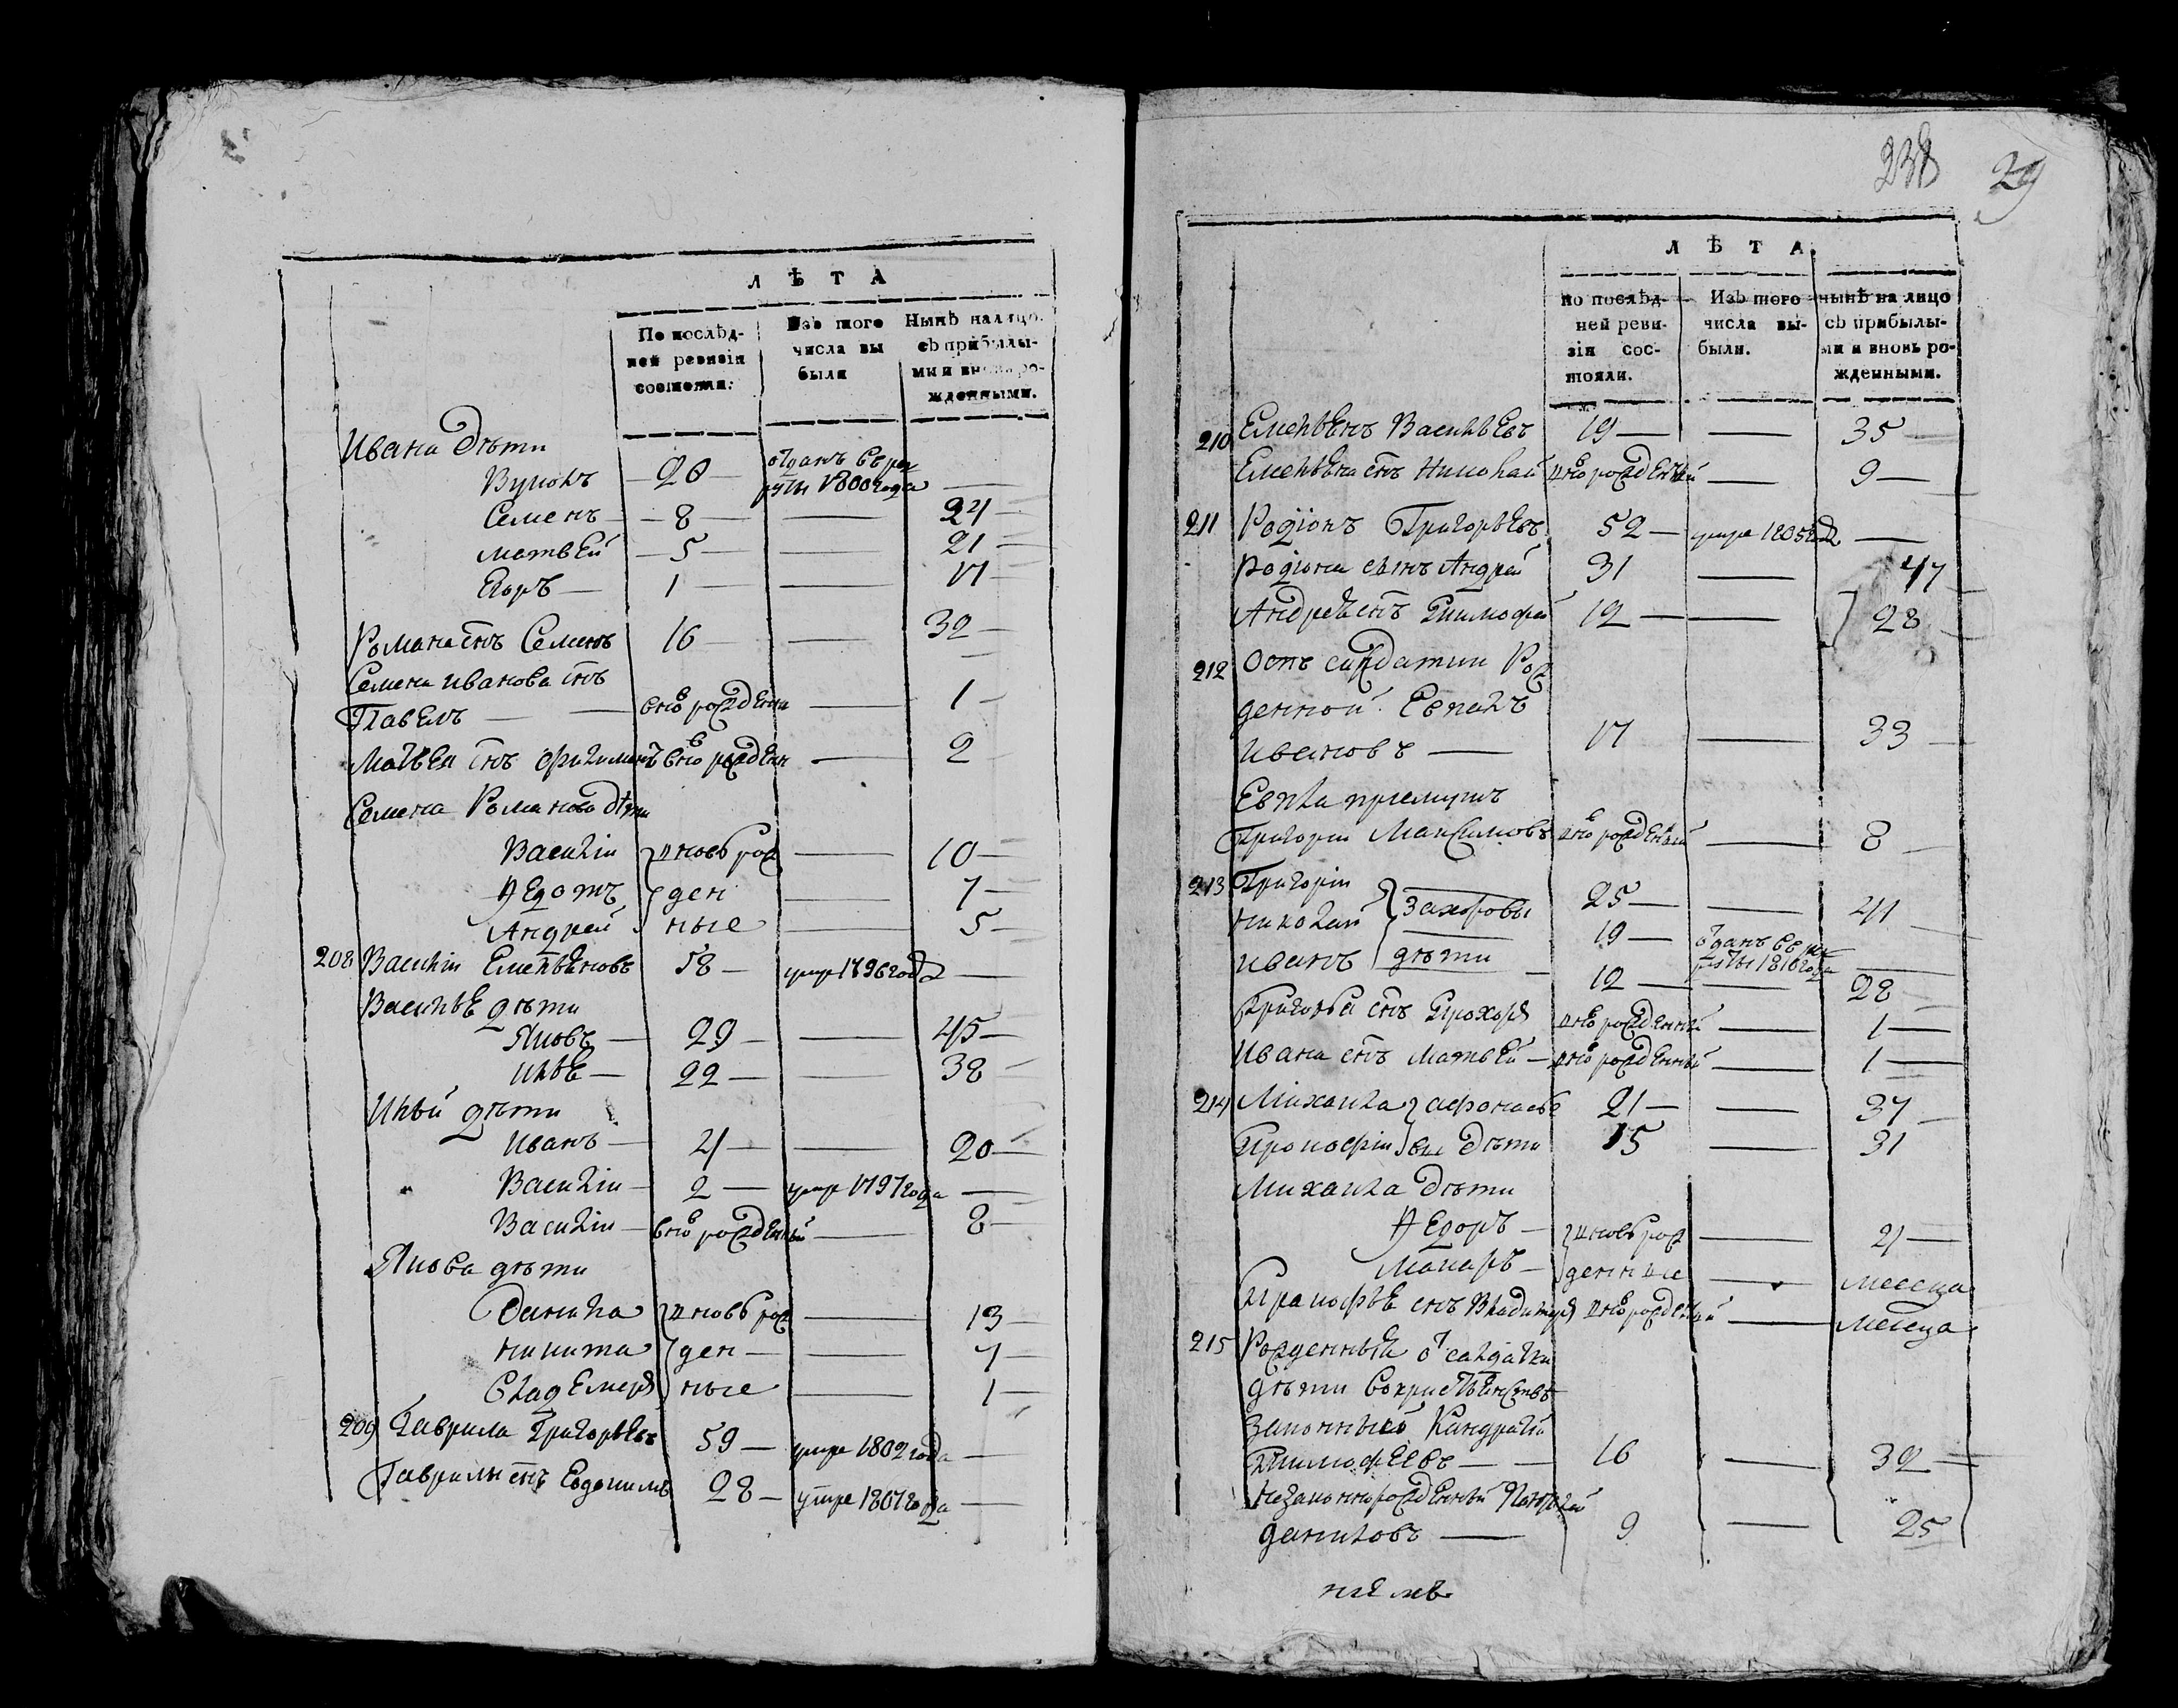 Л Ѣ Т А
По послѣд-
ней ревизіи
состояли.
Изъ того
числа вы
были
Нынѣ на лицо
съ прибылы-
ми и вновь ро-
жденными.
Ивана дѣти
20 — отданъ в рек
руты 1800 года —
Семенъ — 8 — — 24 —
Матвей — 5 — — 21 —
Егоръ — 1 — — 17 —
Романа снъ Семенъ 16 — — 32 —
Семена Иванова снъ
Павелъ — — вно рожденн — 1 —
Матвея снъ вно рожден — 2
Семена Романова дѣти
Василiи вновь рож — 10 —
Ѳедотъ ден — 7 —
Андрей ные — 5 —
208 Василiи Емельяновъ 58 — умре 1796 года —
Васильѣ дѣти
Яковъ — 29 — — 45 —
Илья — 22 — — 38
Ильи дѣти
Иванъ — 4 — — 20 —
Василiи — 2 — умре 1797 года —
Василiи — вно рожденный — 8 —
Якова дѣти
Данила вновь рож — 13 —
Никита ден — — 7 —
Владемеръ ные — 1 —
209 Гаврила Григорьевъ 59 — умре 1802 года —
Гаврилы снъ Евдокимъ 28 — умре 1807 года —
238 29
Л Ѣ Т А.
по послѣд-
ней реви-
зіи сос-
тояли.
Изъ того
числа вы-
были.
нынѣ на лицо
съ прибылы-
ми и вновь ро-
жденными.
210 Емельянъ Васильевъ 19 — — 35 —
Емельяна снъ Николай вно рожденный — 9 —
211 Родiонъ Григорьевъ 52 — умре 1805 год —
Родiона сынъ Андрей 31 — 47 —
Андрея снъ Тимофей 12 — — 28
212 Отъ салдатки Рож
денной Евпалъ
Ивановъ — 17 — 33 —
Евпла приемышъ
Григории Максимовъ вно рожденный — 8 —
213 Григорiи 25 — — 41
Николай Захаровы 19 — отданъ в рек
руты 1810 года —
Иванъ дѣти — 12 — — 28
Григорья снъ Прохоръ вно рожденный — 1 —
Ивана снъ Матвей — вно рожденный — 1 —
214 Михаила афонасье 21 — — 37 —
Прокофiи вы дѣти 15 — 31
Михаила дѣти
Ѳедоръ — вновь рож — 4 —
Макаръ — денные — месеца
Пракофьѣ снъ Владимеръ вно рожденный — месеца
215 Рожденныя от салдатки
дѣти
законныхъ Кандратiй
Тимофеевъ — — 16 — 32 —
незаконнорожденный
Даниловъ — 9 — 25